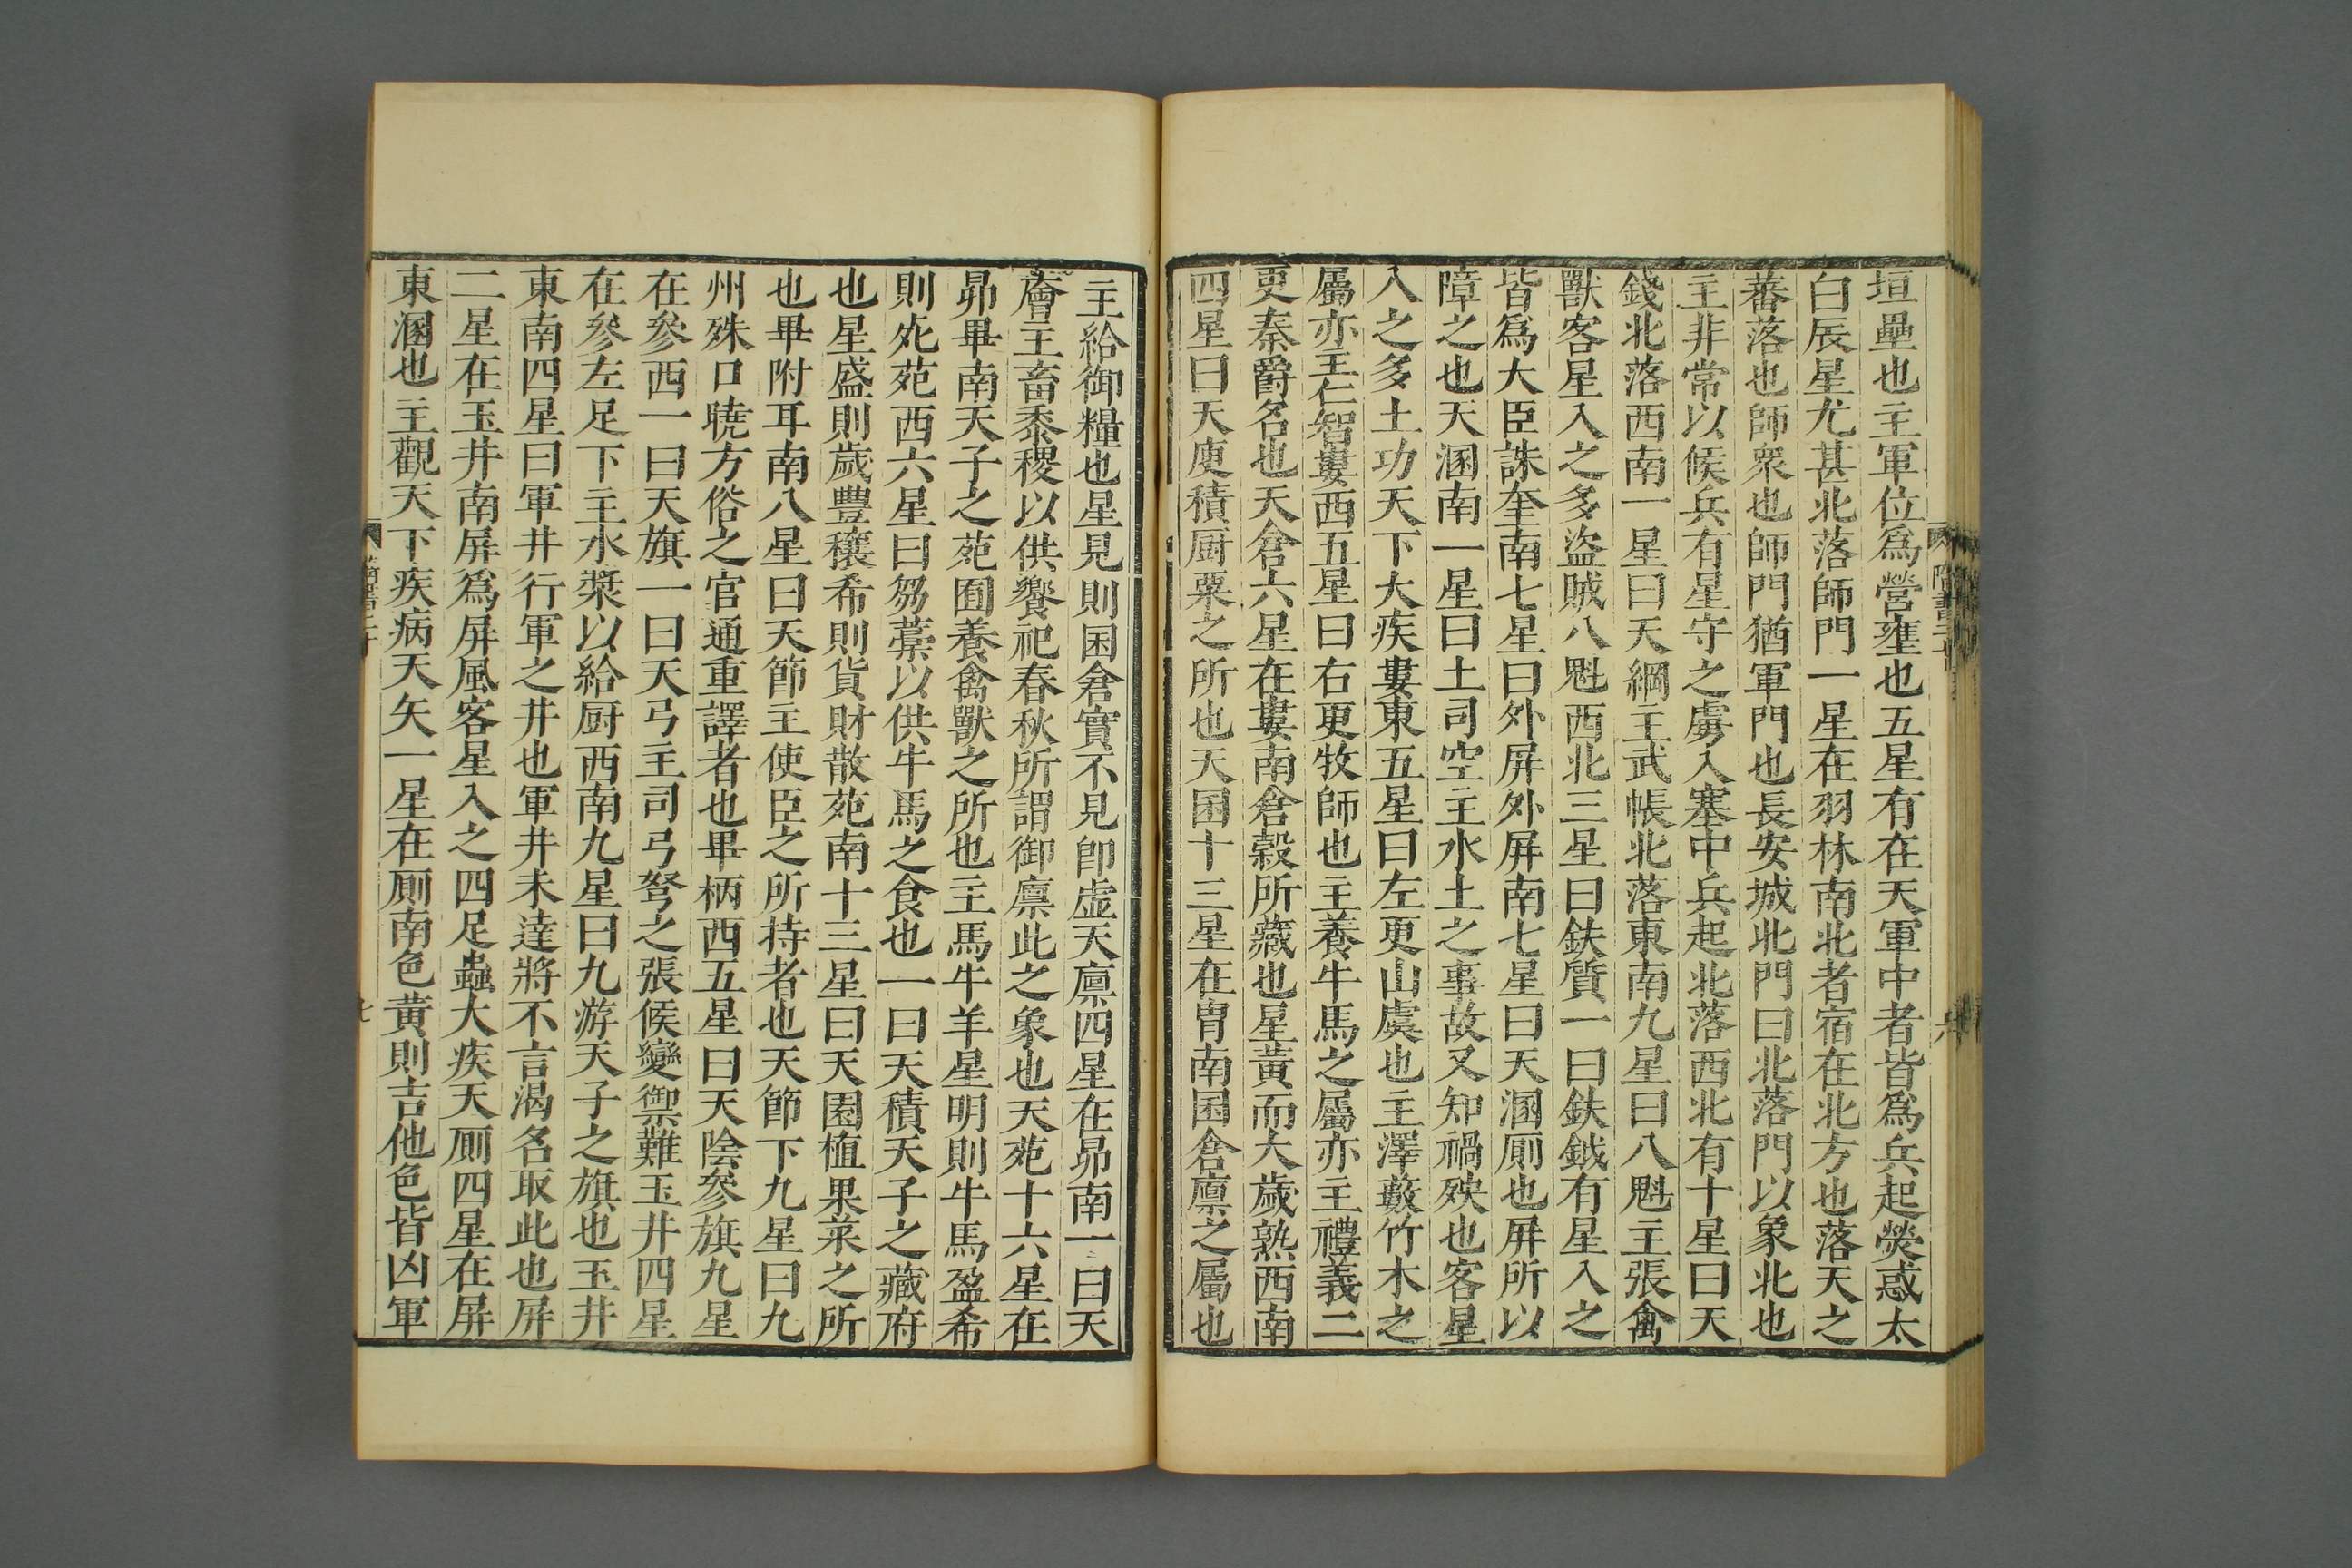 垣壘也主軍位爲營壅也五星有在天軍中者皆爲兵起熒惑太
白辰星尤甚北落師門一星在羽林南北者宿在北方也落天之
蕃落也師衆也師門猶軍門也長安城北門曰北落門以象北也
主非常以候兵有星守之虜入塞中兵起北落西北有十星曰天
錢北落西南一星曰天綱主武帳北落東南九星曰八魁主張禽
獸客星入之多盜賊八魁西北三星曰鈇質一曰鈇鉞有星入之
皆爲大臣誅奎南七星曰外屏外屏南七星曰天溷厠也屏所以
障之也天溷南一星曰土司空主水土之事故又知禍殃也客星
入之多土功天下大疾婁東五星曰左更山虞也主澤藪竹木之
屬亦主仁智婁西五星曰右更牧師也主養牛馬之屬亦主禮義二
更秦爵名也天倉六星在婁南倉穀所藏也星黃而大歲熟西南
四星曰天庾積厨粟之所也天囷十三星在胃南囷倉廩之屬也
主給御糧也星見則囷倉實不見卽虛天廩四星在昴南一曰天
廥主畜黍稷以供饗祀春秋所謂御廪此之象也天苑十六星在
昴畢南天子之苑囿養禽獸之所也主馬牛羊星明則牛馬盈希
則死苑西六星曰芻藁以供牛馬之食也一曰天積天子之藏府
也星盛則歲豐穰希則貨財散苑南十三星曰天園植果菜之所
也畢附耳南八星曰天節主使臣之所持者也天節下九星曰九
州殊口曉方俗之官通重譯者也畢柄西五星曰天陰參旗九星
在參西一曰天旗一曰天弓主司弓弩之張候變禦難玉井四星
在參左足下主水漿以給厨西南九星曰九游天子之旗也玉井
東南四星曰軍井行軍之井也軍井未達將不言渴名取此也屏
二星在玉井南屏爲屏風客星入之四足蟲大疾天厠四星在屏
東溷也主觀天下疾病天矢一星在厠南色黃則吉他色皆凶軍
七